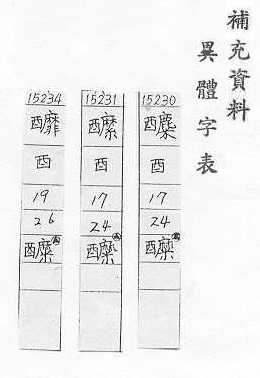 補充資料
異體字表
15230
酉
17
24
醾
15231
酉
17
24
醾
15234
醿
酉
19
26
醾